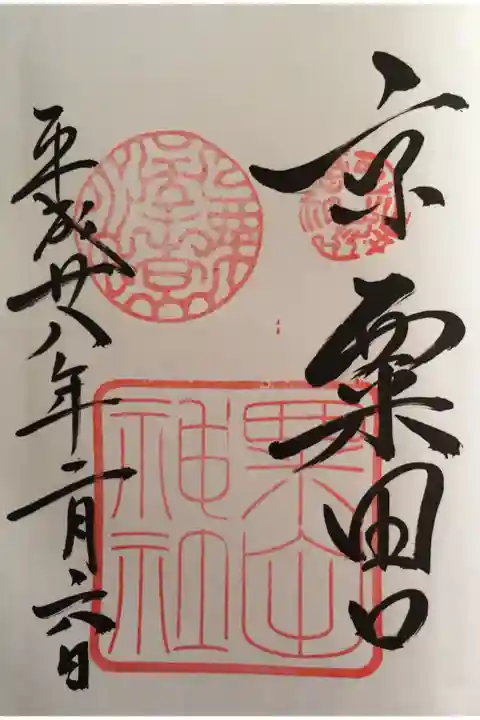 京 粟田口
粟田
神社
平成廿八年二月六日